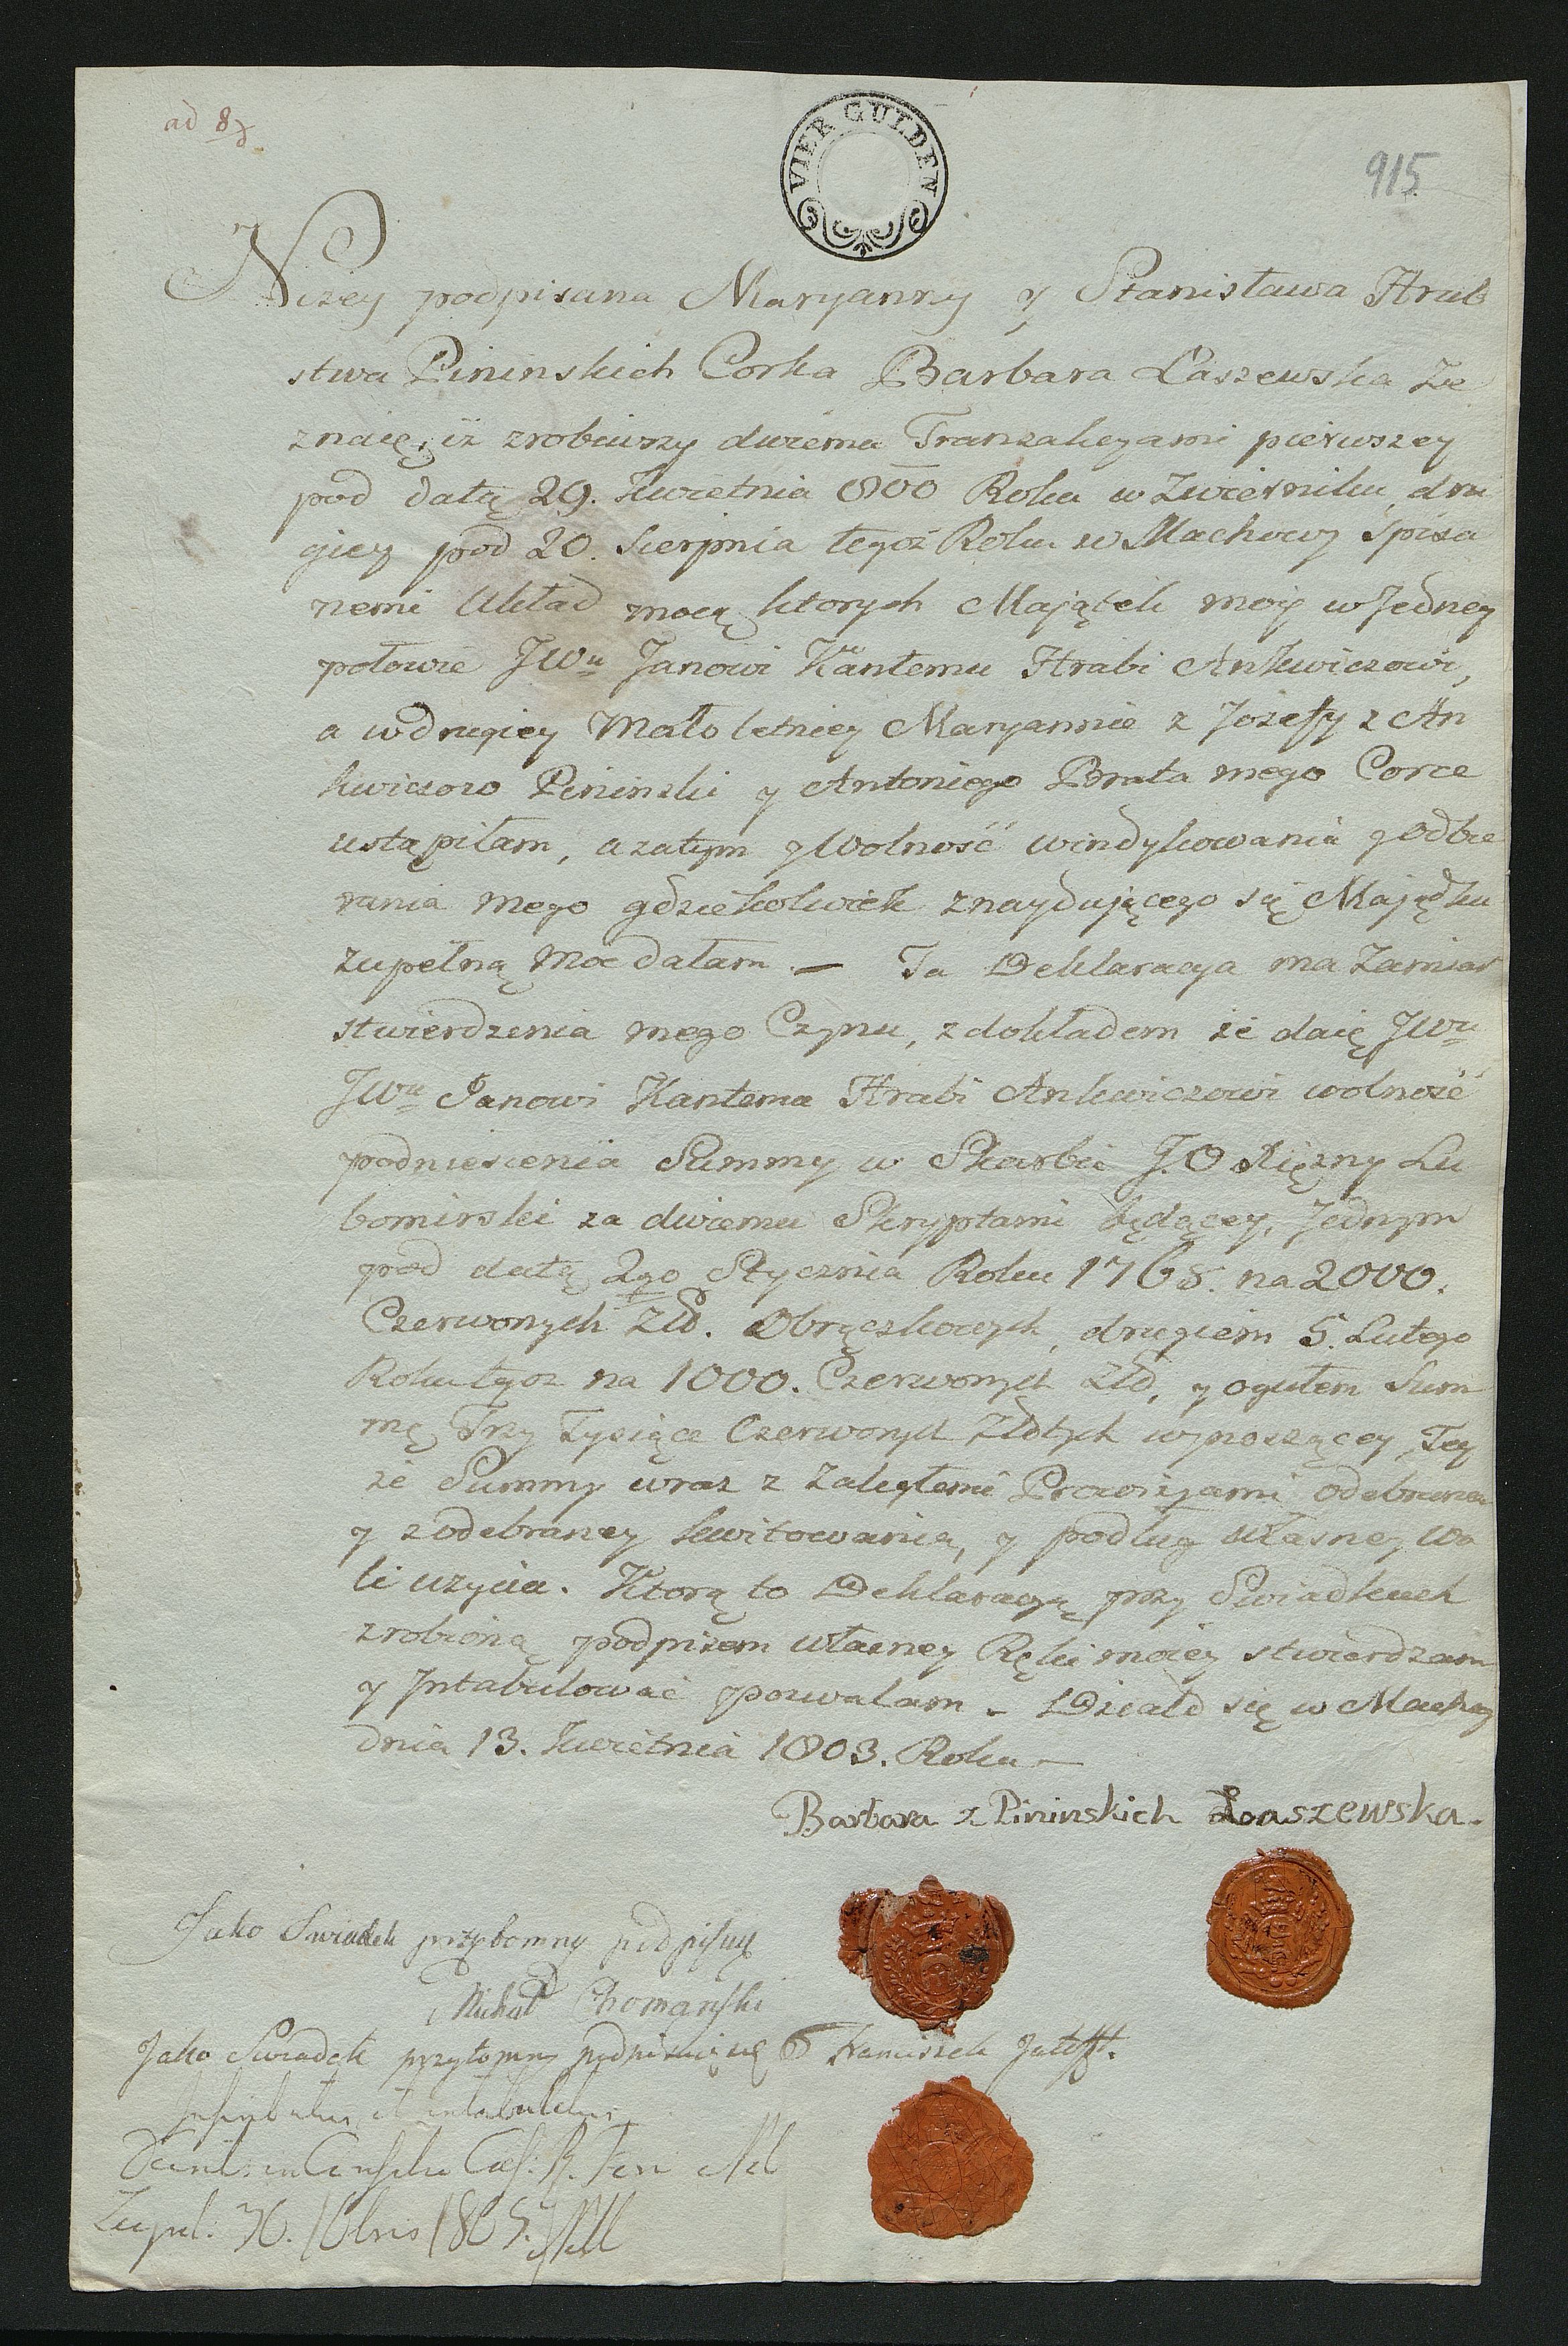 ad 8
VIER GULDEN
915
Niżey podpisana Maryanny y Stanisława Hrab
stwa Pininskich Corka Barbara Łaszewska Ze
znaię, iż zrobiwszy dwiema Tranzakcyami pierwszey
pod datą 29. Kwietnia 800 Roku w Zwierniku, dru
giey pod 20. Sierpnia tegoż Roku w Machowy Spisa
nemi Układ mocą ktorych Majątek moy w Jedney
połowie JWu Janowi Kantemu Hrabi Ankwiczowi,
a w drugiey Mało letniey Maryannie z Jozefy z An
kwiczow Pininski y Antoniego Brata mego Corce
ustąpiłam, a zatym y Wolność windykowania y Odbie
rania mego gdziekolwiek znayduiącego się Maiądku
zupełną Moc dałam. — Ta Deklaracya ma Zamiar
stwierdzenia mego Czynu, z dokładem że daię JWu
JWu Janowi Kantema Hrabi Ankwiczowi wolność
podniesienia Summy w Skarbie J.O Xiężny Lu
bomirski za dwiema Skryptami będącey, Jednym
pod datą 2go Stycznia Roku 1768. na 2000.
Czerwonych Złł. Obrączkowych, drugiem 5. Lutego
Roku tegoż na 1000. Czerwonych Złł, y ogułem Sum
mę Trzy Tysiące Czerwonych Złotych wynoszącey, Tey
że Summy wraz z Zaległemi Prowizyami odebrania
y z odebraney kwitowania, y podług własney wo
li użycia. Ktorą to Deklaracyą przy Swiadkach
zrobioną podpisem własney Ręki moiey stwierdzam
y Jntabulować pozwalam – Działo się w Machowy
dnia 13. Kwietnia 1803. Roku —
Barbara z Pininskich Łaszewska.
Jako Swiadek przytomny podpisuię
Michał Chomański
Jako Swiadek przytomny podpisuię się Franciszek
Inscribatur et intabuletur
Caes: R.
1805.